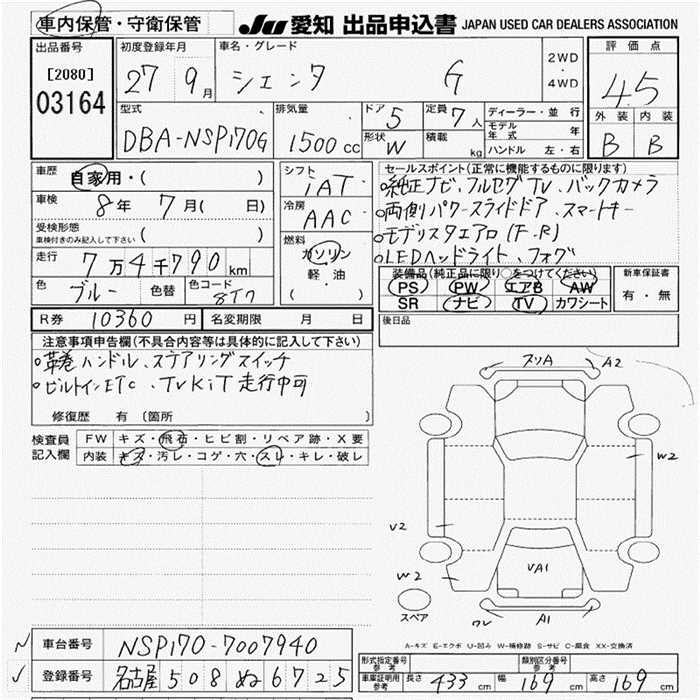 車内保管・守衛保管 JU 愛知 出品申込書 JAPAN USED CAR DEALERS ASSOCIATION
出品番号 初度登録年月 車名・グレード 評価点
[2080] 27 9月 シエンタ G 2WD・4WD 4.5
03164
型式 排気量 ドア 5 定員 7人 ディーラー・並行 外装 内装
DBA-NSP170G 1500cc 形状 W 積載 kg モデル年式 年 B B
ハンドル 左・右
車歴 自家用・( ) シフト IAT セールスポイント(正常に機能するものに限ります)
車検 8年 7月( 日) 冷房 AAC 純正ナビ、フルセグTV、バックカメラ
両側パワースライドドア、スマートキー
受検形態 ( ) 燃料 モデリスタエアロ(F.R)
車検付きのみ記入して下さい ガソリン LEDヘッドライト、フォグ
走行 7万4千790km 軽油 装備品(純正品に限り○をつけてください) 新車保証書
( ) PS PW エアB AW 有・無
色 ブルー 色替 色コード 8T7 SR ナビ TV カワシート
R券 10360円 名変期限 月 日 後日品
注意事項申告欄(不具合内容等は具体的に記入して下さい)
革巻ハンドル、ステアリングスイッチ
ビルトインETC、TVKiT走行中可
修復歴 有 (箇所 )
検査員記入欄 FW キズ・飛石・ヒビ割・リペア跡・X要
内装 キズ・汚レ・コゲ・穴・スレ・キレ・破レ
スリA A2
W2
V2
W2 VA1
スペア A1
A-キズ E-エクボ U-凹み W-補修跡 S-サビ C-腐食 XX-交換済
車台番号 NSP170-7007940
登録番号 名古屋 508 ぬ 6725
形式指定番号 参考 類別区分番号 参考
車庫証明用 参考 長さ 433cm 幅 169cm 高さ 169cm